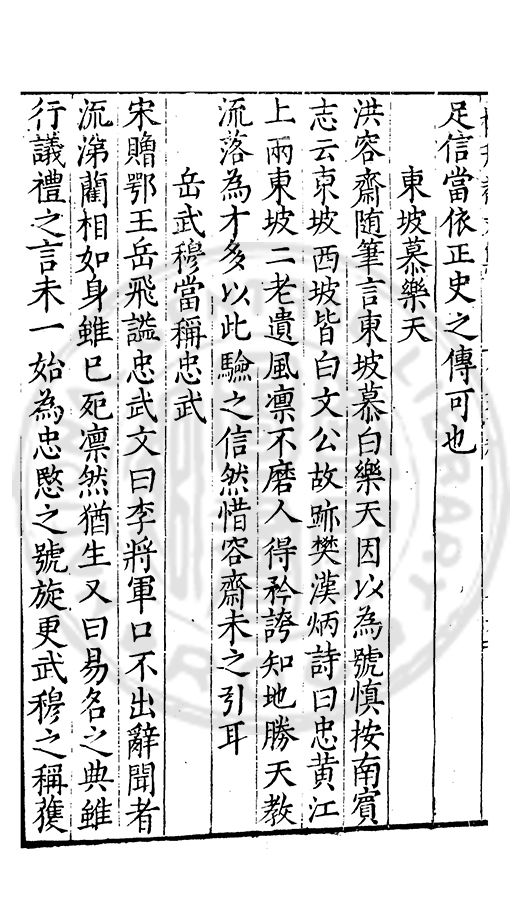 足信當依正史之傳可也
東坡慕樂天
洪容齋随筆言東坡慕白樂天因以為號慎按南賓
志云東坡西坡皆白文公故跡樊漢炳詩曰忠黄江
上兩東坡二老遺風凛不磨人得矜誇知地勝天教
流落為才多以此驗之信然惜容齋未之引耳
岳武穆當稱忠武
宋贈鄂王岳飛謚忠武文曰李將軍口不出辭聞者
流涕藺相如身雖巳死凛然猶生又曰易名之典雖
行議禮之言未一始為忠愍之號旋更武穆之稱蒦
LIBRARY